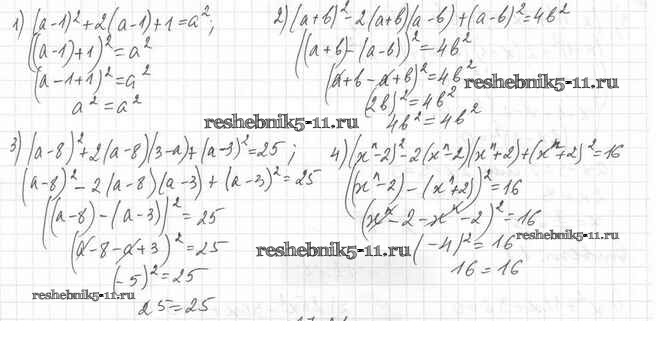 1) (a-1)²+2(a-1)+1=a²;
((a-1)+1)²=a²
(a-1+1)²=a²
a²=a²
2) (a+b)²-2(a+b)(a-b)+(a-b)²=4b²
((a+b)-(a-b))²=4b²
(a+b-a+b)²=4b²
(2b)²=4b²
4b²=4b²
reshebnik5-11.ru
reshebnik5-11.ru
3) (a-8)²+2(a-8)(3-a)+(a-3)²=25;
(a-8)²-2(a-8)(a-3)+(a-3)²=25
((a-8)-(a-3))²=25
(a-8-a+3)²=25
(-5)²=25
25=25
4) (xⁿ-2)²-2(xⁿ-2)(xⁿ+2)+(xⁿ+2)²=16
((xⁿ-2)-(xⁿ+2))²=16
(xⁿ-2-xⁿ-2)²=16
(-4)²=16
16=16
reshebnik5-11.ru
reshebnik5-11.ru
reshebnik5-11.ru